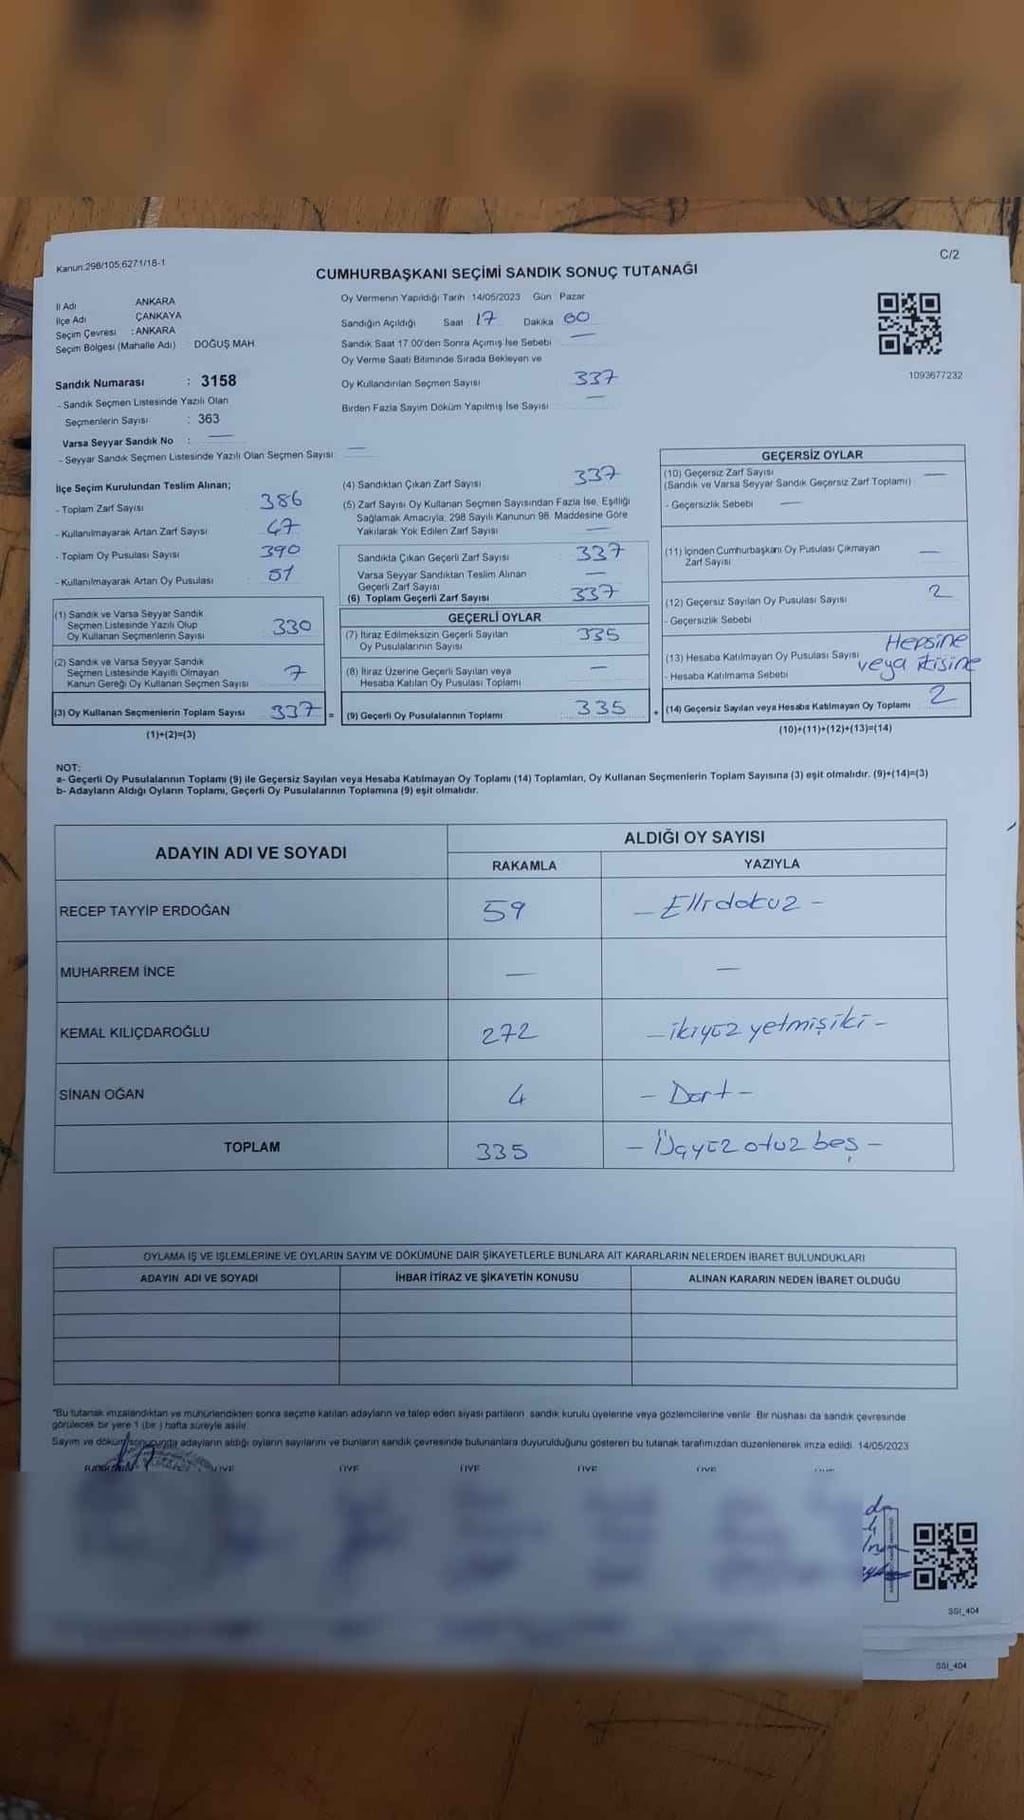 Kanun:298/105,6271/18-1
C/2
CUMHURBAŞKANI SEÇİMİ SANDIK SONUÇ TUTANAĞI
İl Adı ANKARA
İlçe Adı ÇANKAYA
Seçim Çevresi : ANKARA
Seçim Bölgesi (Mahalle Adı) DOĞUŞ MAH
Sandık Numarası : 3158
- Sandık Seçmen Listesinde Yazılı Olan
Seçmenlerin Sayısı : 363
Varsa Seyyar Sandık No : —
- Seyyar Sandık Seçmen Listesinde Yazılı Olan Seçmen Sayısı —
Oy Vermenin Yapıldığı Tarih 14/05/2023 Gün : Pazar
Sandığın Açıldığı Saat 17 Dakika 00
Sandık Saat 17:00'den Sonra Açımış İse Sebebi —
Oy Verme Saati Bitiminde Sırada Bekleyen ve
Oy Kullandırılan Seçmen Sayısı 337
Birden Fazla Sayım Döküm Yapılmış İse Sayısı —
1093677232
İlçe Seçim Kurulundan Teslim Alınan;
- Toplam Zarf Sayısı 386
- Kullanılmayarak Artan Zarf Sayısı 47
- Toplam Oy Pusulası Sayısı 390
- Kullanılmayarak Artan Oy Pusulası 51
(1) Sandık ve Varsa Seyyar Sandık
Seçmen Listesinde Yazılı Olup
Oy Kullanan Seçmenlerin Sayısı 330
(2) Sandık ve Varsa Seyyar Sandık
Seçmen Listesinde Kayıtlı Olmayan
Kanun Gereği Oy Kullanan Seçmen Sayısı 7
(3) Oy Kullanan Seçmenlerin Toplam Sayısı 337 =
(1)+(2)=(3)
(4) Sandıktan Çıkan Zarf Sayısı 337
(5) Zarf Sayısı Oy Kullanan Seçmen Sayısından Fazla İse, Eşitliği
Sağlamak Amacıyla, 298 Sayılı Kanunun 98. Maddesine Göre
Yakılarak Yok Edilen Zarf Sayısı —
Sandıkta Çıkan Geçerli Zarf Sayısı 337
Varsa Seyyar Sandıktan Teslim Alınan
Geçerli Zarf Sayısı —
(6) Toplam Geçerli Zarf Sayısı 337
GEÇERLİ OYLAR
(7) İtiraz Edilmeksizin Geçerli Sayılan
Oy Pusulalarının Sayısı 335
(8) İtiraz Üzerine Geçerli Sayılan veya
Hesaba Katılan Oy Pusulası Toplamı —
(9) Geçerli Oy Pusulalarının Toplamı 335 +
GEÇERSİZ OYLAR
(10) Geçersiz Zarf Sayısı —
(Sandık ve Varsa Seyyar Sandık Geçersiz Zarf Toplamı)
- Geçersizlik Sebebi —
(11) İçinden Cumhurbaşkanı Oy Pusulası Çıkmayan
Zarf Sayısı —
(12) Geçersiz Sayılan Oy Pusulası Sayısı 2
- Geçersizlik Sebebi Hepsine
(13) Hesaba Katılmayan Oy Pusulası Sayısı veya ikisine
- Hesaba Katılmama Sebebi
(14) Geçersiz Sayılan veya Hesaba Katılmayan Oy Toplamı 2
(10)+(11)+(12)+(13)=(14)
NOT:
a- Geçerli Oy Pusulalarının Toplamı (9) ile Geçersiz Sayılan veya Hesaba Katılmayan Oy Toplamı (14) Toplamları, Oy Kullanan Seçmenlerin Toplam Sayısına (3) eşit olmalıdır. (9)+(14)=(3)
b- Adayların Aldığı Oyların Toplamı, Geçerli Oy Pusulalarının Toplamına (9) eşit olmalıdır.
ADAYIN ADI VE SOYADI
ALDIĞI OY SAYISI
RAKAMLA YAZIYLA
RECEP TAYYİP ERDOĞAN 59 - Ellidokuz -
MUHARREM İNCE — —
KEMAL KILIÇDAROĞLU 272 - ikiyüz yetmişiki -
SİNAN OĞAN 4 - Dört -
TOPLAM 335 - Üçyüz otuz beş -
OYLAMA İŞ VE İŞLEMLERİNE VE OYLARIN SAYIM VE DÖKÜMÜNE DAİR ŞİKAYETLERLE BUNLARA AİT KARARLARIN NELERDEN İBARET BULUNDUKLARI
ADAYIN ADI VE SOYADI İHBAR İTİRAZ VE ŞİKAYETİN KONUSU ALINAN KARARIN NEDEN İBARET OLDUĞU
"Bu tutanak imzalandıktan ve mühürlendikten sonra seçime katılan adayların ve talep eden siyasi partilerin sandık kurulu üyelerine veya gözlemcilerine verilir. Bir nüshası da sandık çevresinde
görülecek bir yere 1 (bir) hafta süreyle asılır.
Sayım ve döküm sonucunda adayların aldığı oyların sayılarını ve bunların sandık çevresinde bulunanlara duyurulduğunu gösteren bu tutanak tarafımızdan düzenlenerek imza edildi. 14/05/2023
ÜYE ÜYE ÜYE ÜYE ÜYE
SSI_404
SSI_404